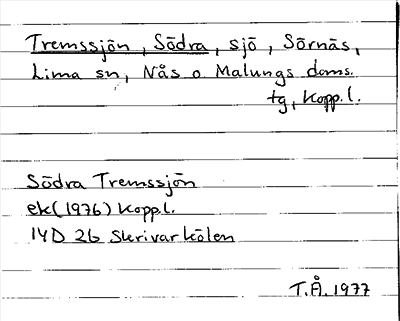 Tremssjön, Södra, sjö, Sörnäs,
Lima sn, Nås o Malungs doms.
tg, Kopp.l.
Södra Tremssjön
ek(1976) Kopp.l.
14D 2b Skrivarkölen
T.Å. 1977